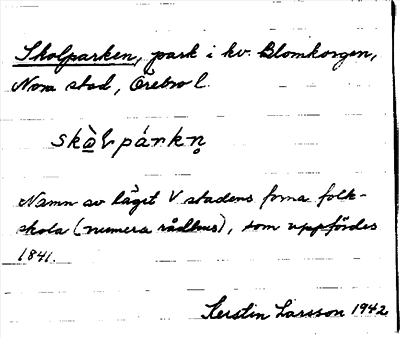 Skolparken, park i kv. Blomkorgen,
Nora stad, Örebro l.
skɷ̀lpárkn̥
Namn av läget V stadens forna folk-
skola (numera rådhus), som uppfördes
1841.
Kerstin Larsson 1942